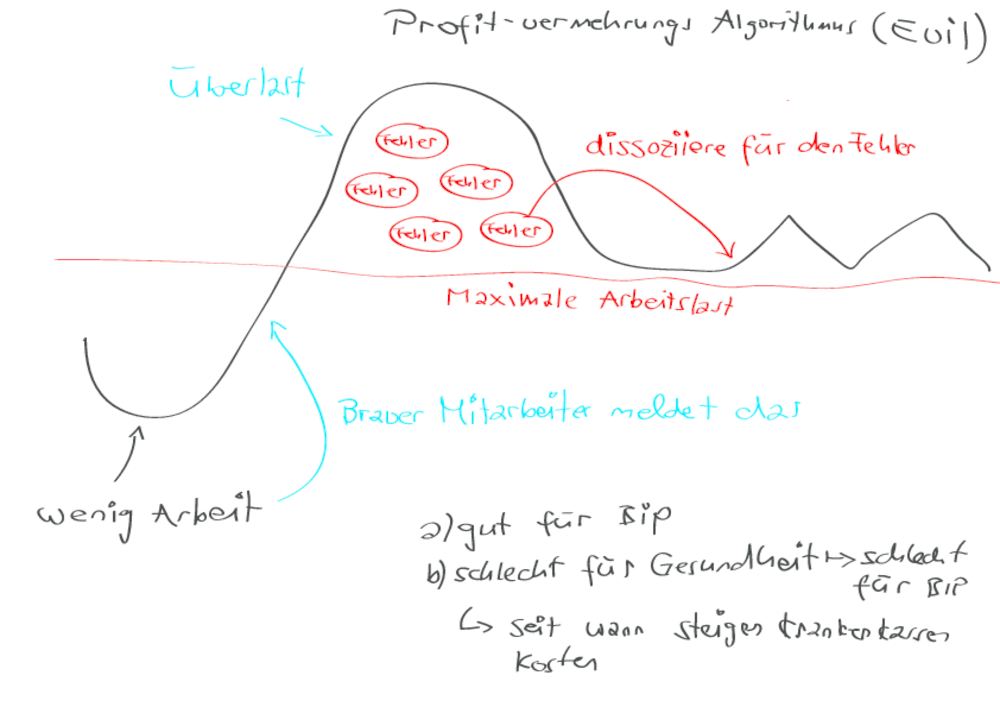 Profit-vermehrungs Algorithmus (Evil)
Überlast
Fehler
Fehler
Fehler
Fehler
Fehler
dissoziiere für den Fehler
Maximale Arbeitslast
Braver Mitarbeiter meldet das
wenig Arbeit
a) gut für BiP
b) schlecht für Gesundheit ↦ schlecht
für BIP
↳ seit wann steigen krankenkassen
kosten